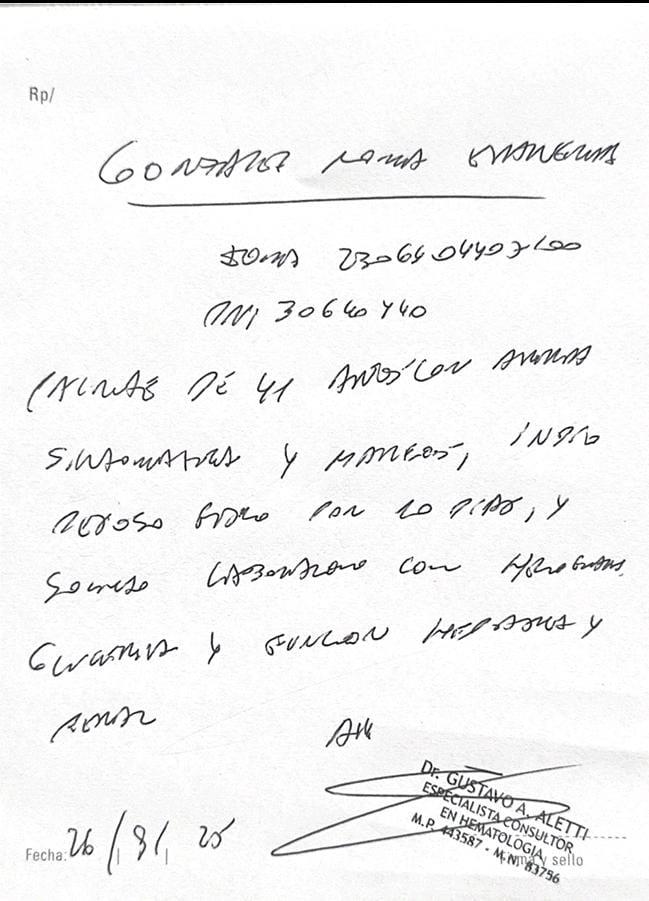 Rp/
GONZALEZ MARIA EVANGELINA
IOMA
DNI 30640440
PACIENTE DE 41 AÑOS CON ANEMIA
SINTOMATICA Y MAREOS, INDICO
REPOSO FISICO POR 20 DIAS, Y
SOLICITO LABORATORIO CON HEMOGRAMA,
GLUCEMIA Y FUNCION HEPATICA Y
RENAL
Dr. GUSTAVO A. ALETTI
ESPECIALISTA CONSULTOR
EN HEMATOLOGIA
M.P. 443587 - M.N. 83756
Fecha: 26/8/25
Firma y sello